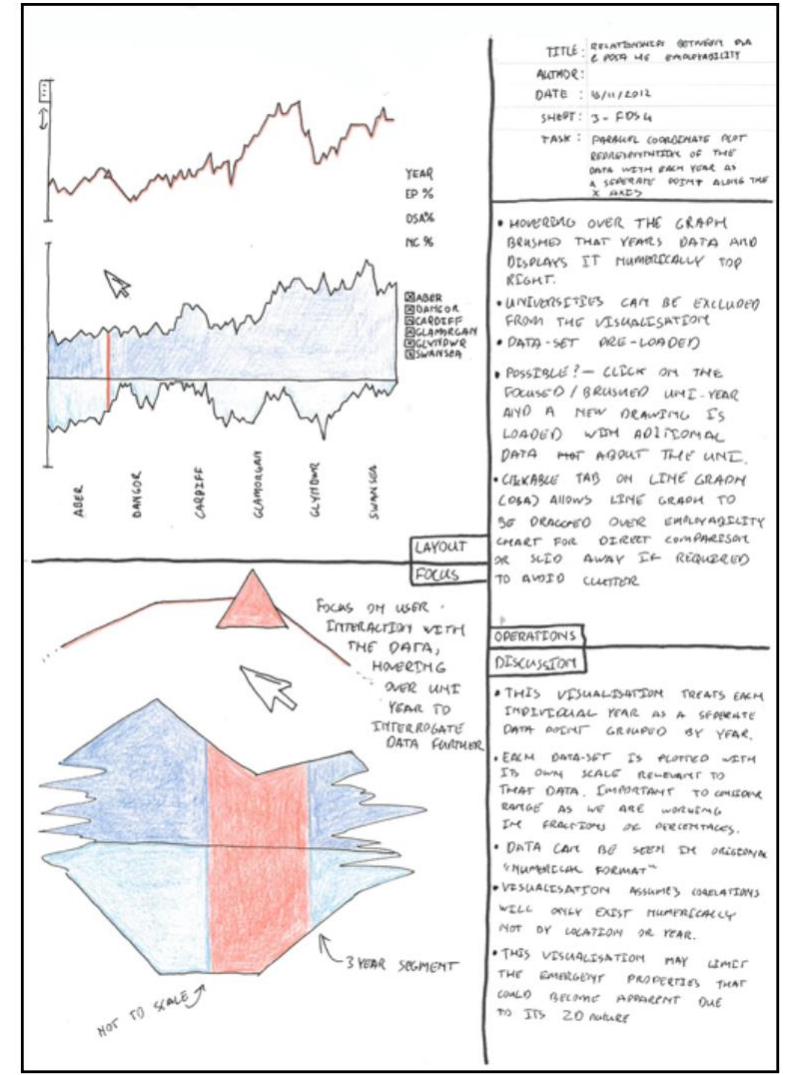 TITLE: RELATIONSHIPS BETWEEN DSA
& POST HE EMPLOYABILITY
AUTHOR:
DATE : /11/2012
SHEET: 3 - FDS 4
TASK : PARALLEL COORDINATE PLOT
REPRESENTATION OF THE
DATA WITH EACH YEAR AS
A SEPERATE POINT ALONG THE
X AXIS
YEAR
EP %
DSA%
NC %
ABER
BANGOR
CARDIFF
GLAMORGAN
GLYNDWR
SWANSEA
ABER
BANGOR
CARDIFF
GLAMORGAN
GLYNDWR
SWANSEA
LAYOUT
FOCUS
FOCUS ON USER
INTERACTION WITH
THE DATA,
HOVERING
OVER UNI
YEAR TO
INTERROGATE
DATA FURTHER
3 YEAR SEGMENT
NOT TO SCALE
• HOVERING OVER THE GRAPH
BRUSHED THAT YEARS DATA AND
DISPLAYS IT NUMERICALLY TOP
RIGHT.
• UNIVERSITIES CAN BE EXCLUDED
FROM THE VISUALISATION
• DATA-SET PRE-LOADED
• POSSIBLE? - CLICK ON THE
FOCUSED / BRUSHED UNI-YEAR
AND A NEW DRAWING IS
LOADED WITH ADITIONAL
DATA ABOUT THE UNI.
• CLICKABLE TAB ON LINE GRAPH
(DSA) ALLOWS LINE GRAPH TO
BE DRAGGED OVER EMPLOYABILITY
CHART FOR DIRECT COMPARISON
OR SLID AWAY IF REQUIRED
TO AVOID CLUTTER
OPERATIONS
DISCUSSION
• THIS VISUALISATION TREATS EACH
INDIVIDUAL YEAR AS A SEPERATE
DATA POINT GROUPED BY YEAR.
• EACH DATA-SET IS PLOTTED WITH
ITS OWN SCALE RELEVANT TO
THAT DATA. IMPORTANT TO CONSIDER
RANGE AS WE ARE WORKING
IN FRACTIONS OF PERCENTAGES.
• DATA CAN BE SEEN IN ORIGIONAL
"NUMERICAL FORMAT"
• VISUALISATION ASSUMES CORELATIONS
WILL ONLY EXIST NUMERICALLY
NOT BY LOCATION OR YEAR.
• THIS VISUALISATION MAY LIMIT
THE EMERGENT PROPERTIES THAT
COULD BECOME APPARENT DUE
TO ITS 2D NATURE